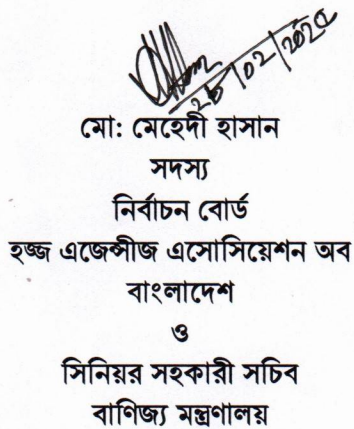 মো: মেহেদী হাসান
সদস্য
নির্বাচন বোর্ড
হজ্জ এজেন্সীজ এসোসিয়েশন অব
বাংলাদেশ
ও
সিনিয়র সহকারী সচিব
বাণিজ্য মন্ত্রণালয়